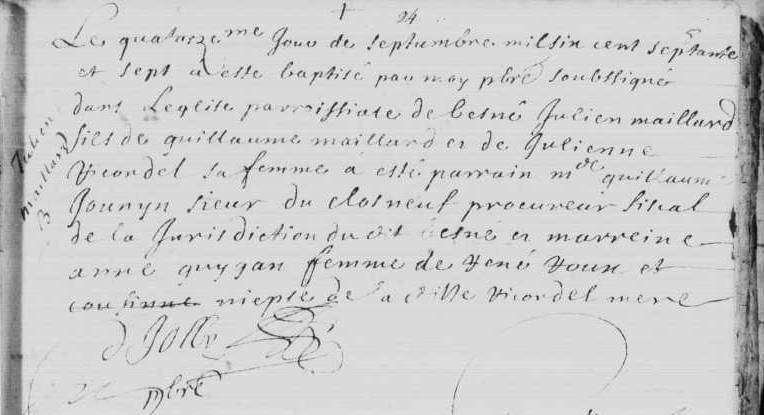 24
Le quatorzeme Jour de septumbre mil six cent septante
et sept a esté baptisé par moy pbre soubssigné
dans Leglise parroissiale de besné Julien maillard
fils de guillaume maillard et de Julienne
Vicordel sa femme a esté parrain mre guillaume
Jounyn sieur du closneuf procureur fiscal
de la Jurisdiction dudit besné et marreine
anne guygan femme de René Roux et
cousinne niepse de ladite Vicordel mere
pbre
Julien
maillard
B